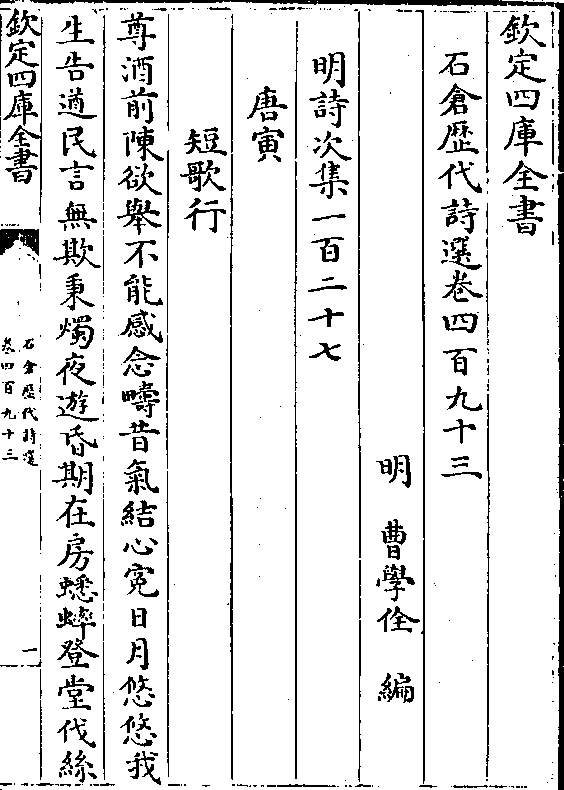 欽定四庫全書
石倉歴代詩選卷四百九十三
明 曹學佺 編
明詩次集一百二十七
唐寅
短歌行
尊酒前陳欲舉不能感念疇昔氣結心寃日月悠悠我
生告遒民言無欺秉燭夜遊昏期在房蟋蟀登堂伐絲
欽定四庫全書
石倉歴代詩選
卷四百九十三
一